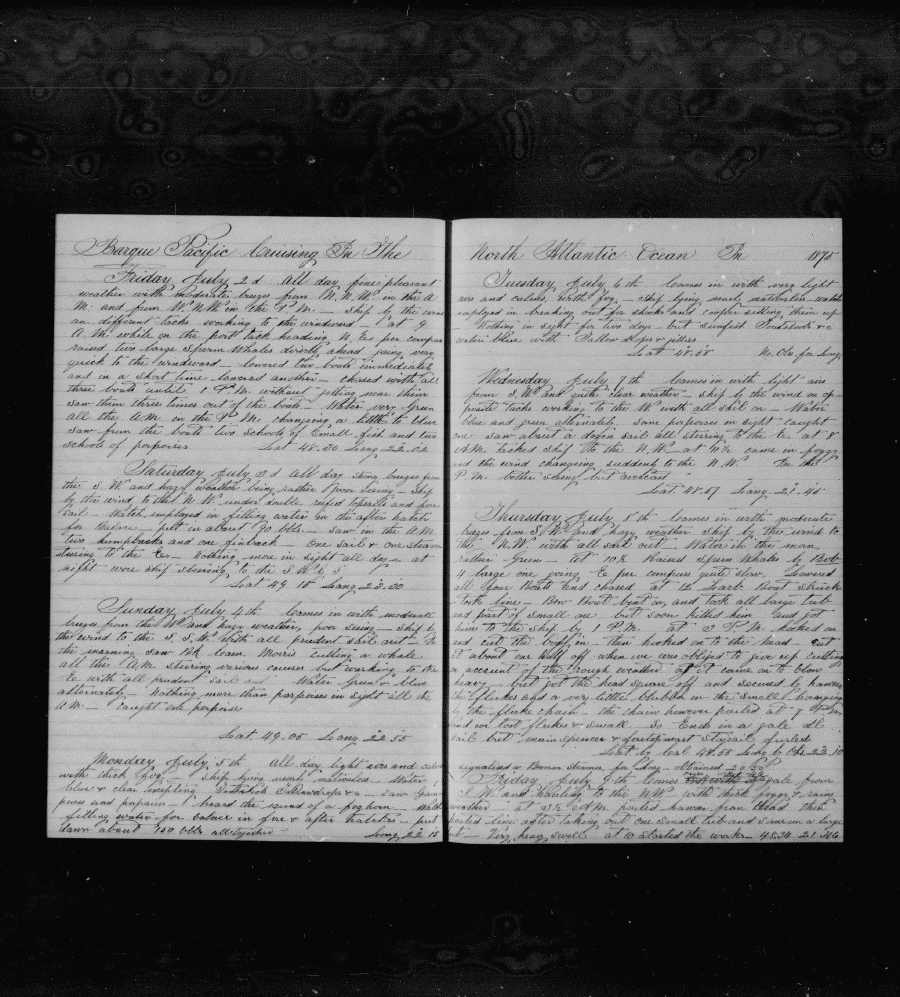 Barque Pacific Cruising In The
Friday July 2d All day fine pleasant
weather with moderate breezes from N.N.W. in the A
M. and from W.N.W. in the P.M. — Ship by the wind
on different tacks working to the windward — at 9
A.M. while on the port tack heading N.E. per compass
raised two large Sperm Whales directly ahead going very
quick to the windward — lowered two boats immediately
and in a short time lowered another — chased with all
three boats until 1 P.M. without getting near them
saw them three times out of the boats — Water very Green
all the A.M. in the P.M. changing a little to blue
saw from the boats two schools of small fish and two
schools of porpoises Lat 48.30 Long 22.02
Saturday July 3d All day strong breezes from
the S.W. and hazy weather being rather poor seeing — Ship
by the wind to the N.W. under double reefed topsails and fore
sail — Watch employed in filling water in the after hatch
for balace — put in about 90 bbls — saw in the A.M.
two humpbacks and one finback — One sail & one steam
steering to the E. — nothing more in sight all day — at
night wore ship steering to the S.W. & S
Lat 49 15 Long 23.30
Sunday July 4th Comes in with moderate
breezes from the W. and hazy weather, poor seeing — Ship by
the wind to the S.S.W. with all prudent sail out — In
the morning saw Bk Eam. Morris cutting a whale
all the A.M. steering various courses but working to the
E. with all prudent sail out Water Green & blue
alternately — Nothing more than porpoises in sight all the
A.M. — Caught one porpoise
Lat 49.05 Long 22 55
Monday July 5th All day light airs and calms
with thick fog — Ship lying nearly motionless — Water
blue & clear excepting — saw Gram
puses and porpoises — heard the sound of a foghorn — Watch
filling water for balace in fore & after hatches — put
down about 150 bbls altogether — Long 22 18
North Atlantic Ocean In 1875
Tuesday July 6th Comes in with very light
airs and calms, with fog — Ship lying nearly motionless — watch
employed in breaking out for shooks and cooper setting them up
— Nothing in sight for two days — but
water blue with
Lat 48.58 No Obs for Long
Wednesday July 7th Comes in with light airs
from S.W. and quite clear weather — Ship by the wind on op-
posite tacks working to the W. with all sail on — Water
blue and green alternately. some porpoises in sight caught
one saw about a dozen sail all steering to the E. at 8
A.M. tacked ship to the N.W. at 11½ came in foggy
and the wind changing suddenly to the N.W. In the
P.M. better seeing but overcast
Lat 48.57 Long 21.45
Thursday July 8th Comes in with moderate
breezes from S.W. and hazy weather Ship by the wind to
the N.W. with all sail out — Water in the morn
rather Green — At 10½ Raised Sperm Whales by Bob
4 large one going E. per compass quite slow. Lowered
all four Boats and chased at 12 Larb. Boat struck
took line — Bow Boat bent on, and took all large tub
and part of small one but soon killed him and got
him to the ship by 1 P.M. at 3 P.M. hooked on
and cut the body in — then hooked on to the head, cut
it about one half off when we was obliged to give up cutting
on account of the rough weather as it came on to blow
heavy — but got the head square off and secured by hawser
the flukes and a very little blubber on the small hanging
by the fluke chain — the chain however parted at 7 P.M.
and we lost flukes & small. So Ends in a gale all
sail but main spencer & foretopmast staysail furled
Lat by Cal 48.55 Long by Chr 22.10
signalized a German Steamer, for Long — obtained 22 00
Friday July 9th Comes in with a gale from
S.W. and hauling to the N.W. with thick foggy & rainy
weather at 3½ A.M. parted hawser from Head then
parted line after taking out one small tub and some in a large
tub — Very heavy swell at 10 started the works — 48.34 21.46